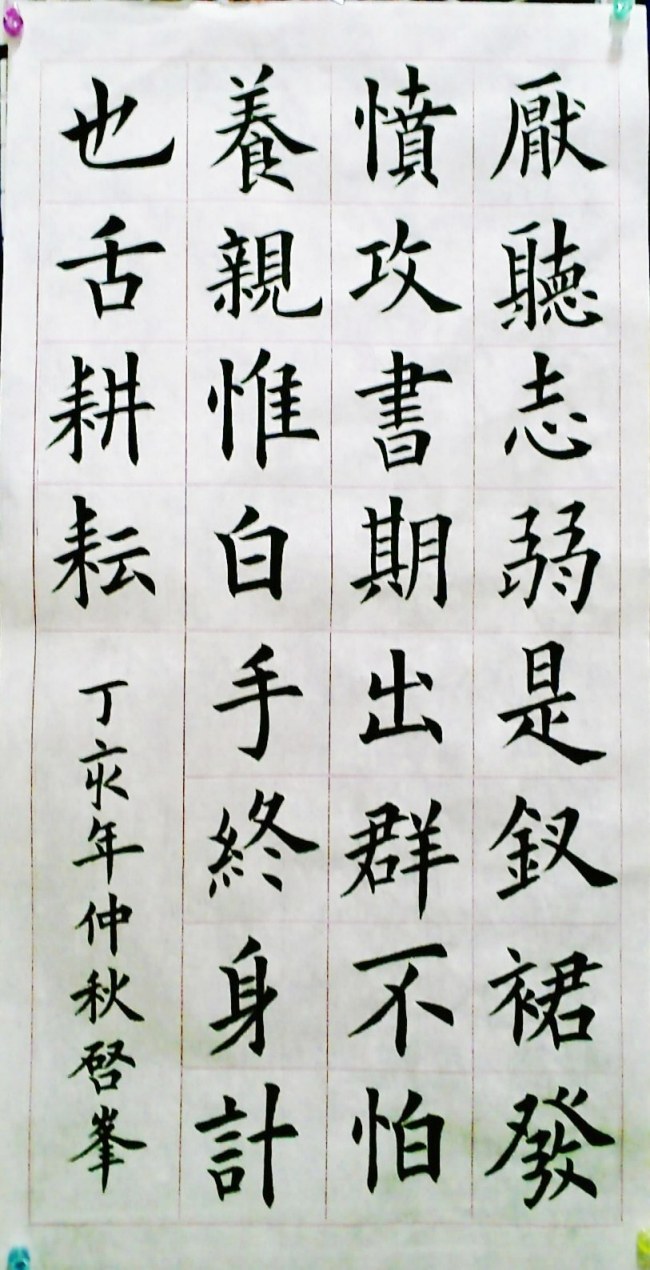 厭聽志弱是釵裙發
憤攻書期出群不怕
養親惟白手終身計
也舌耕耘
丁亥年仲秋啓峯